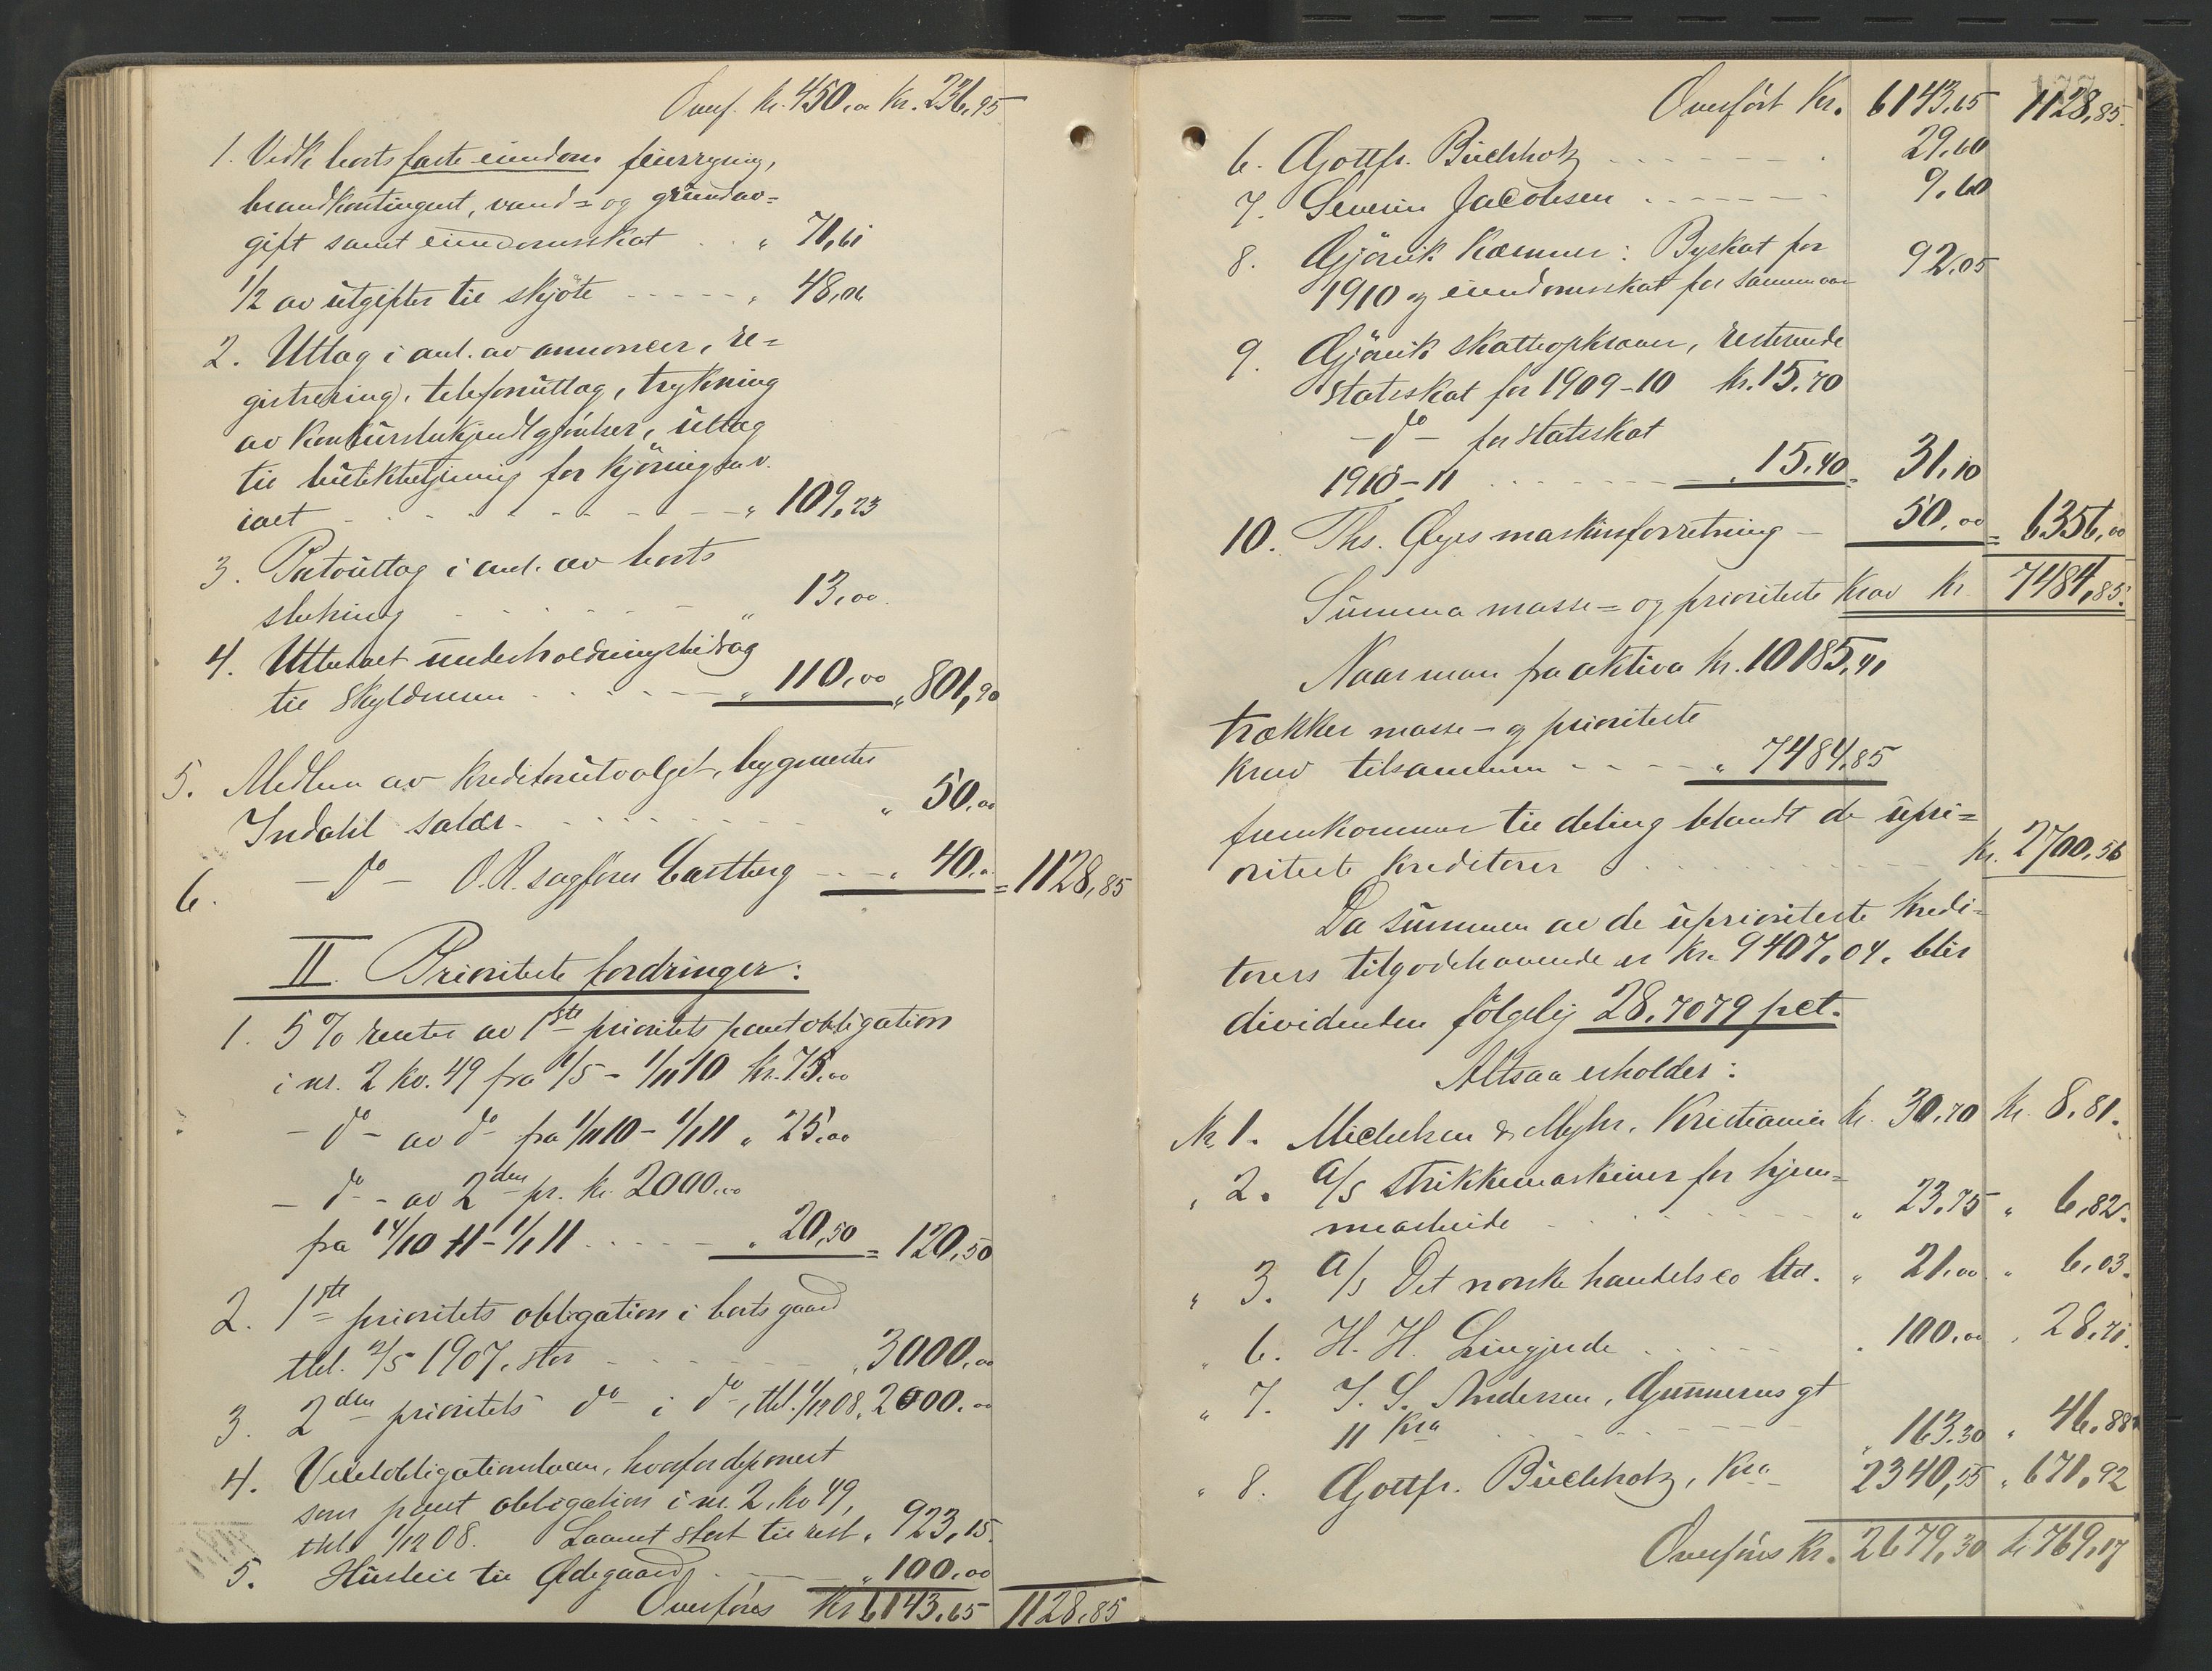 Overf. kr. 450,00 Kr. 236,95
1. Vedk borts faste eiendom feierpenger,
brandkontingent, vand= og grundav=
gift samt eiendomsskat . . „ 71,61
1/2 av utgifter til skjöte - - - - „ 48,06
2. Utlæg i anl. av annoncer, re=
gistrering, telefonutlæg, trykning
av konkursbekjendtgjörelser, utlæg
til butikbetjening for kjöring m.v.
ialt - - - - - - - „ 109,23
3. Portoutlæg i anl. av borts
slutning - - - - - „ 13,00
4. Utbetalt underholdningsbidrag
til skyldneren . . . - - „ 110,00 „ 801,90
5. Medlem av kreditorutvalget, bygmester
Indahl salær. . . . . . . . „ 50.00
6. - do - O.R. sagförer Castberg - - - „ 40.00 = 1128,85
II. Prioriterte fordringer:
1. 5 % renter av 1ste prioritets pantobligation
i nr. 2 kv. 49 fra 1/5 - 1/11 10 kr. 75.00
- do - av do - fra 1/11 10 - 1/1 11 „ 25.00
- do - av 2den pr. kr. 2000.00
fra 14/10 11 - 1/1 11 . . . . - - „ 20,50 = 120,50
2. 1ste prioritets obligation i borts gaard
thl. 2/5 1907, stor - - - - - „ 3000,00
3. 2den prioritets do - i do -, thl. 1/12 08. 2000.00
4. Vexelobligationslaan, hvorfor deponert
som pant obligation i nr. 2, kv 49,
thl. 1/12 08. Laanet stort til rest „ 923,15
5. Husleie til Ødegaard . - - - „ 100,00
Overföres Kr 6143.65 1128.85
Overfört Kr. 6143,65 1128,85
6. Gottfr. Büchholz - - - - - . 29,60
7. Severin Jacobsen - - - - - - 9,60
8. Gjövik Kæmner: Byskat for
1910 og eiendomsskat for samme aar 92,05
9. Gjövik skatteopkræver, resterende
statsskat for 1909-10 kr. 15.70
- do - for statsskat
1910-11 . . . . . - - „ 15,40 = 31,10
10. Ths. Øyes maskinforretning - 50,00 = 6356,00
Summa masse= og prioriterte krav kr 7484,85
Naar man fra aktiva kr. 10185,41
trækker masse- og prioriterte
krav tilsammen - - - - „ 7484,85
fremkommer til deling blandt de upri=
oriterte kreditorer . . . . . . kr. 2700,56
Da summen av de uprioriterte kredi=
torers tilgodehavende er kr. 9407,04, blir
dividenden fölgelig 28,7079 pct.
Altsaa erholder:
Nr 1. Michelsen & Myhr, Kristiania kr. 30,70 kr. 8,81.
„ 2. a/s Strikkemaskiner for hjem=
mearbeide - - - - - „ 23,75 „ 6,82.
„ 3. a/s Det norske handelsco ltd. „ 21,00 „ 6,03.
„ 6. H. H. Lingjerde . . . . . „ 100,00 „ 28,71.
„ 7. J. S. Andersen, Gunnerus gt
11 Kra . . . . . - - - „ 163.30 „ 46,88
„ 8. Gottfr. Büchholz, Kra 2340,55 „ 671,92
Overföres Kr. 2679,30 kr 769,17